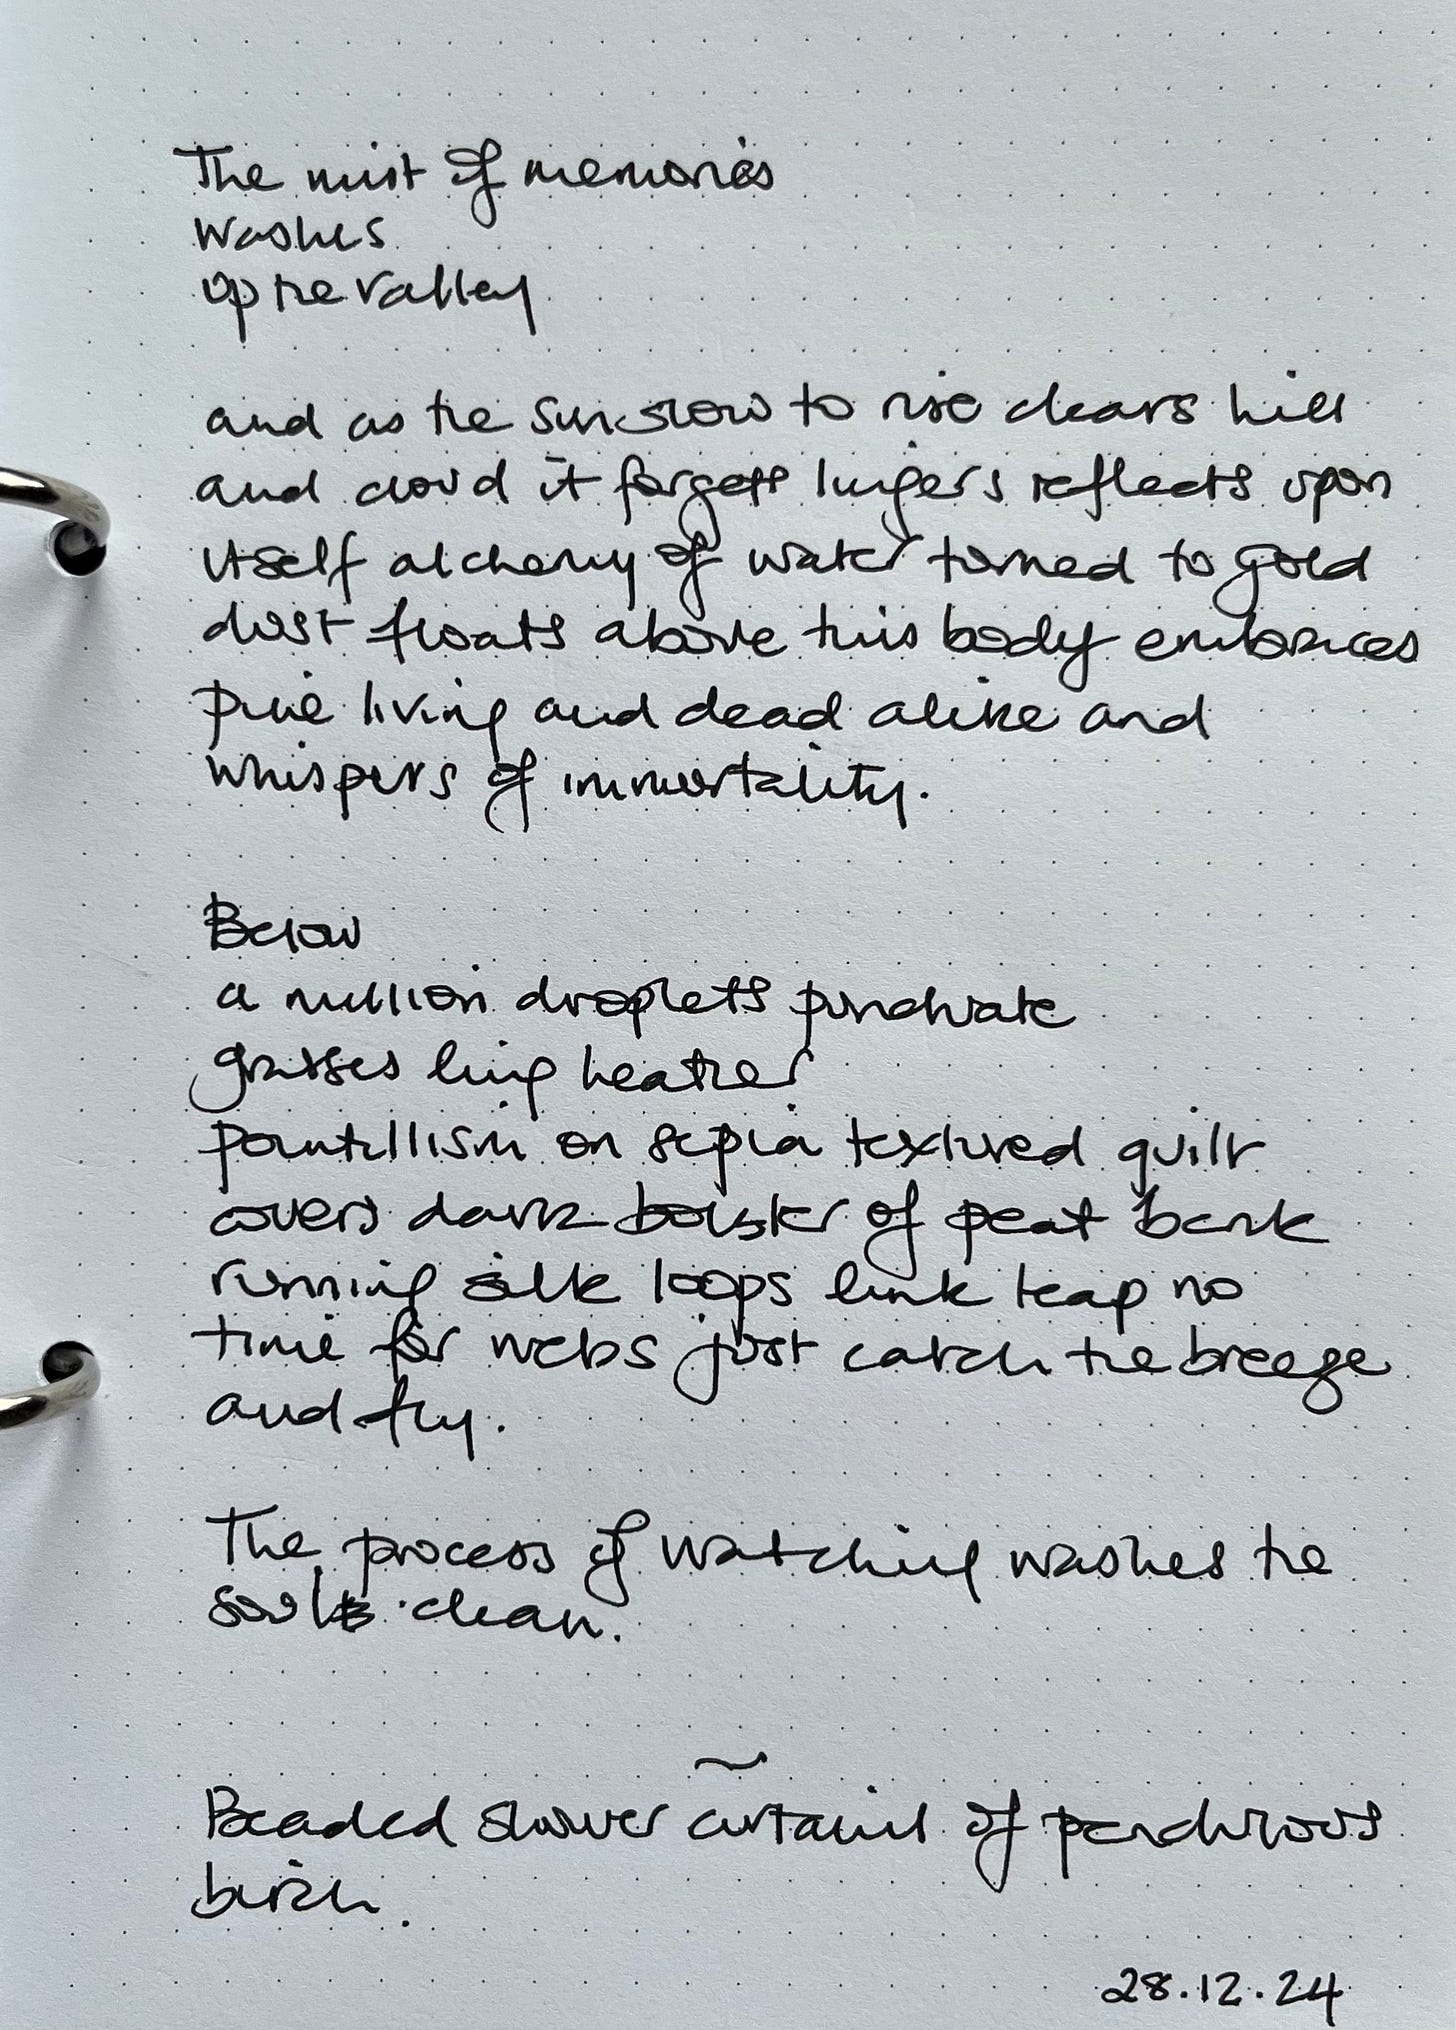 The mist of memories
washes
up the valley
and as the sun slow to rise clears hill
and cloud it forgets lingers reflects upon
itself alchemy of water turned to gold
dust floats above this body embraces
pine living and dead alike and
whispers of immortality.
Below
a million droplets punctuate
grasses ling heather
pointillism on sepia textured quilt
covers dark bolster of peat bank
running silk loops link leap no
time for webs just catch the breeze
and fly.
The process of watching washes the
soul clean.
~
Beaded shower curtains of pendulous
birch.
28.12.24